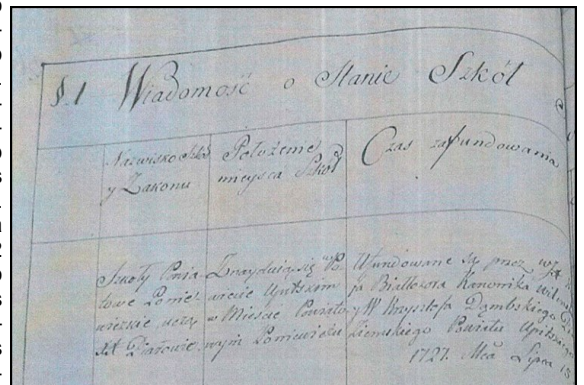 §.1 Wiadomość o Stanie Szkół
Nazwisko Szkół
y Zakonu
Położenie
mieysca Szkół
Czas zafundowania
Szkoły Powia-
towe Ponie-
wiezkie, uczą
XX Piarowie.
Znayduią się w Po-
wiecie Upitskim
w Mieście Powiato-
wym Poniewieżu
Ufundowane są przez
Białłozora Kanonika
y W Krzysztofa Dąmbskiego
Ziemskiego Powiatu
1727. Mca Lipca 15